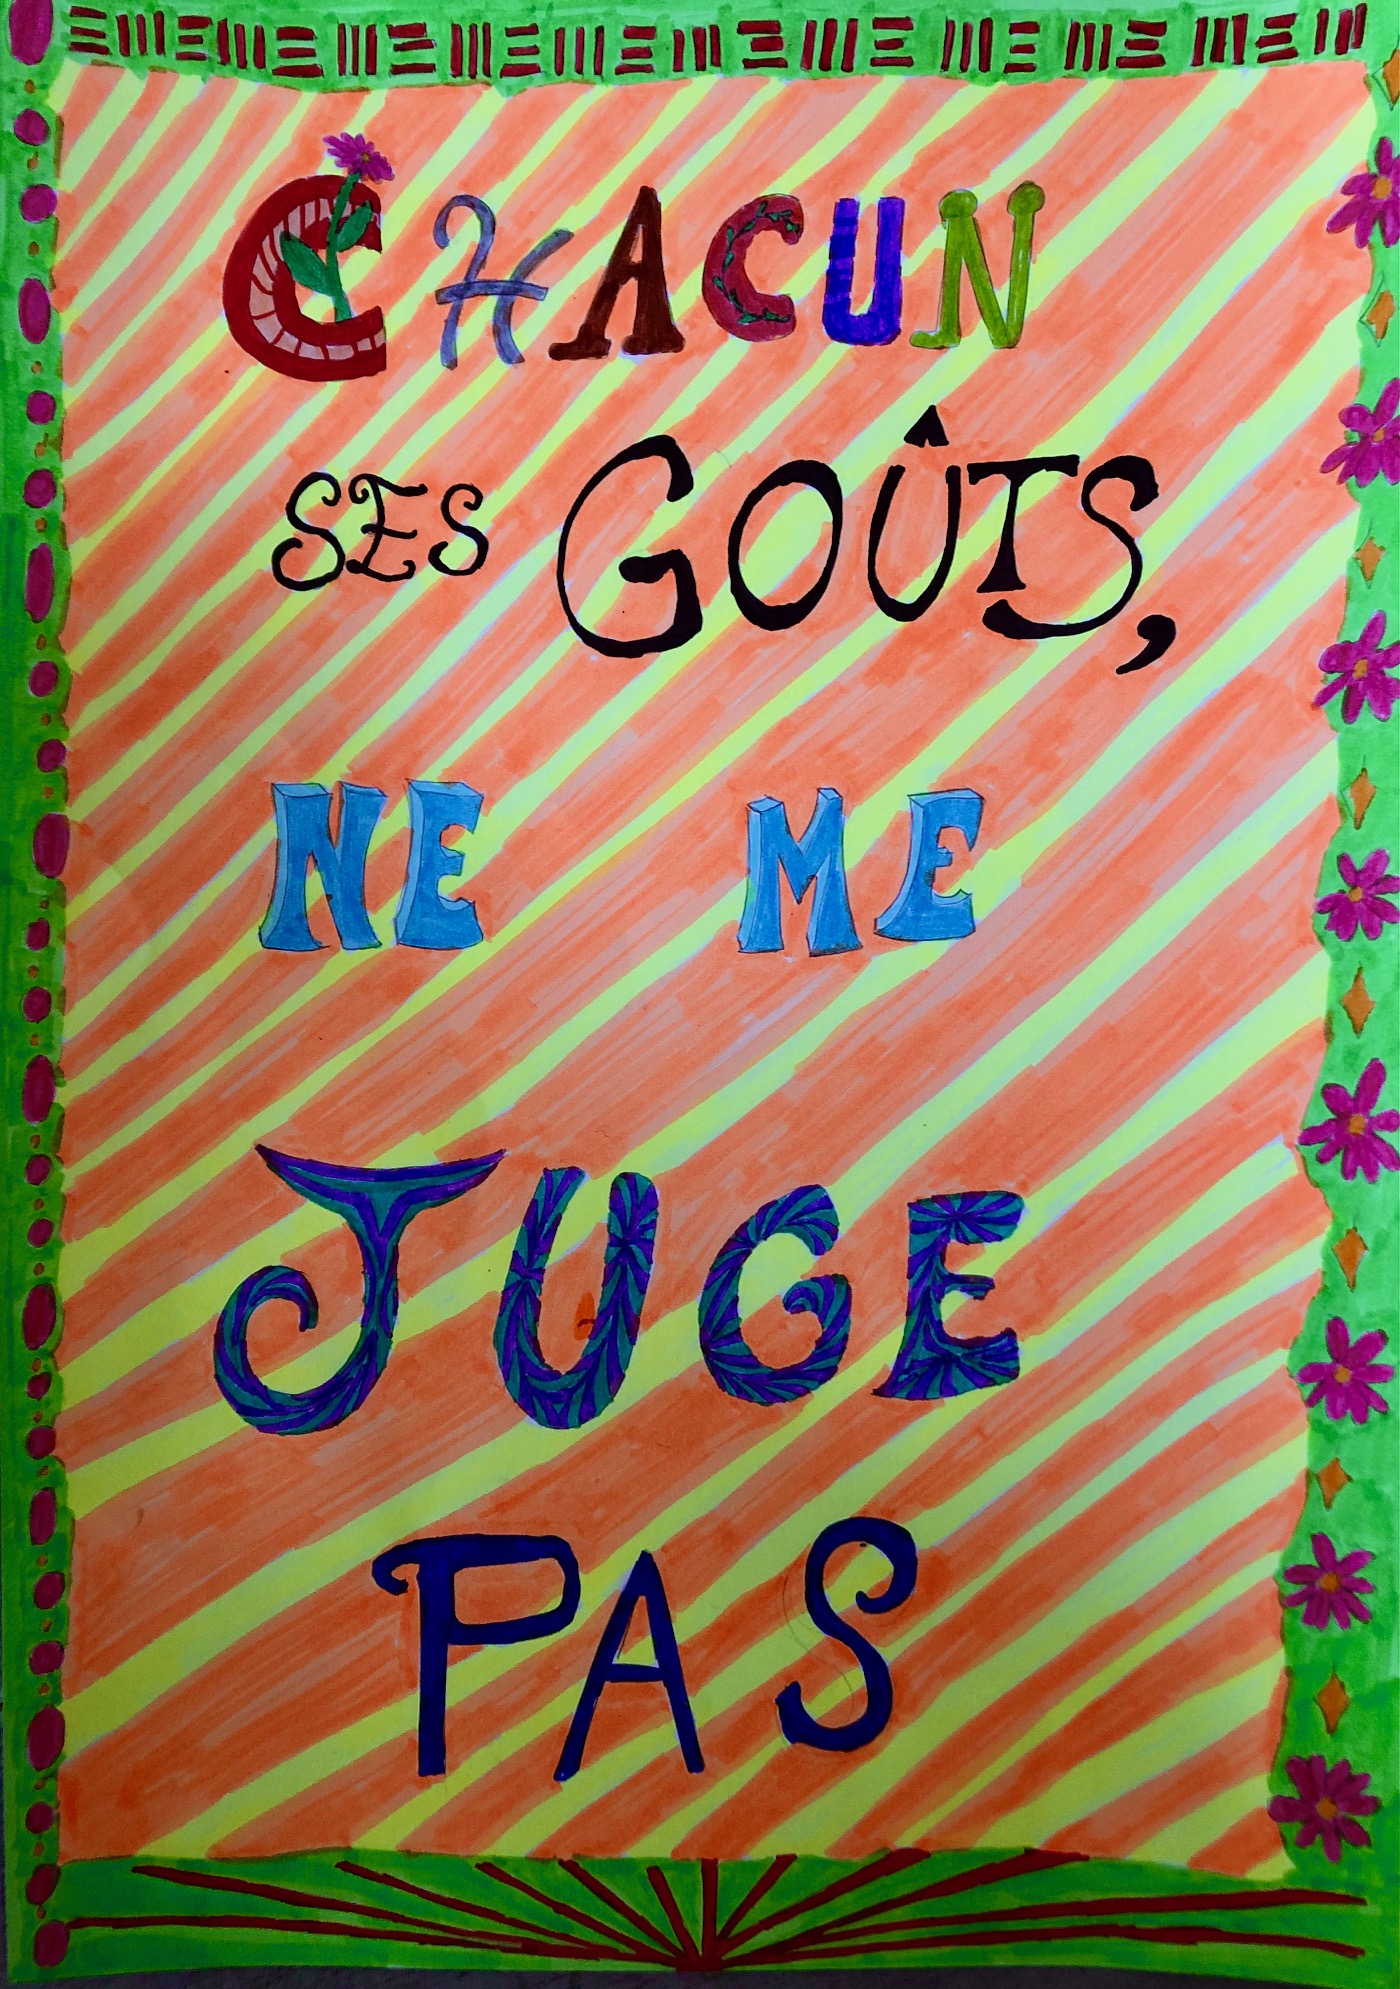 CHACUN
SES GOÛTS,
NE ME
JUGE
PAS